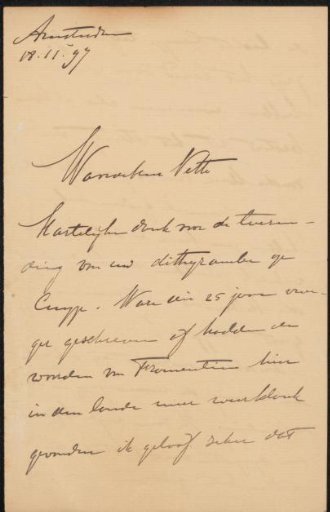 Amsterdam
18.11.97
Waarde Heer Veth
Hartelijken dank voor de toezen-
ding van uw dithyrambe op
Cuyp. Ware die 25 jaren vroe-
ger geschreven of hadden de
woorden van Fromentin hier
in den lande meer weerklank
gevonden ik geloof zeker dat